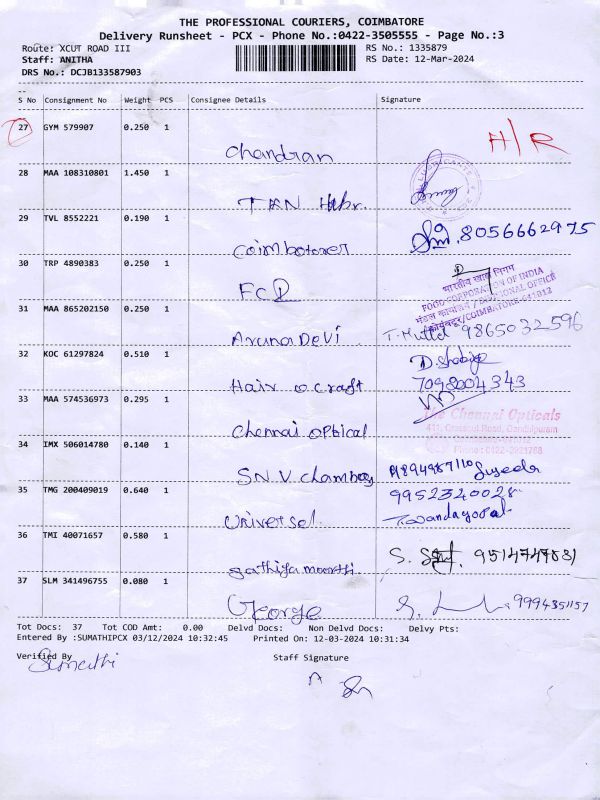 THE PROFESSIONAL COURIERS, COIMBATORE
Delivery Runsheet - PCX - Phone No.:0422-3505555 - Page No.:3
Route: XCUT ROAD III RS No.: 1335879
Staff: ANITHA RS Date: 12-Mar-2024
DRS No.: DCJB133587903
S No Consignment No Weight PCS Consignee Details Signature
27 GYM 579907 0.250 1 Chandran H/R
28 MAA 108310801 1.450 1
29 TVL 8552221 0.190 1 8056662975
30 TRP 4890383 0.250 1 FCI
भारतीय खाद्य निगम
FOOD CORPORATION OF INDIA
31 MAA 865202150 0.250 1 Aruna Devi 9865032596
32 KOC 61297824 0.510 1 Hair o craft 7098004343
33 MAA 574536973 0.295 1 Chennai optical
The Chennai Opticals
34 IMX 506014780 0.140 1 SN.V
35 TMG 200409019 0.640 1 Universel 9952340028
36 TMI 40071657 0.580 1
37 SLM 341496755 0.080 1 George 9994351157
Tot Docs: 37 Tot COD Amt: 0.00 Delvd Docs: Non Delvd Docs: Delvy Pts:
Entered By :SUMATHIPCX 03/12/2024 10:32:45 Printed On: 12-03-2024 10:31:34
Verified By Staff Signature
Sumathi